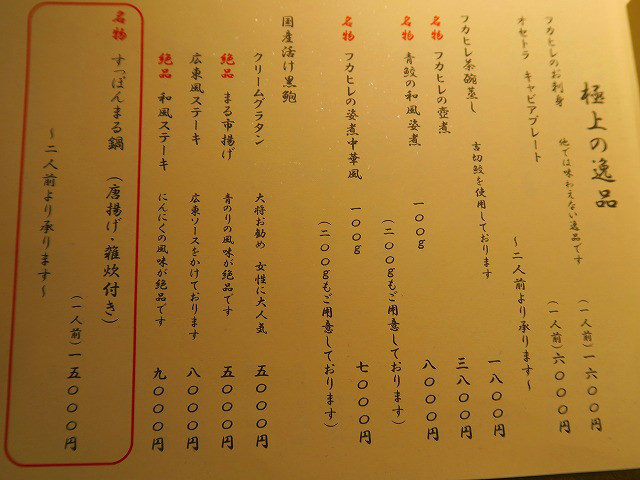 極上の逸品
フカヒレのお刺身 他では味わえない逸品です (一人前)一六〇〇円
オセトラ キャビアプレート (一人前)六〇〇〇円
～二人前より承ります～
フカヒレ茶碗蒸し 吉切鮫を使用しております 一八〇〇円
名物 フカヒレの壺煮 三八〇〇円
名物 青鮫の和風姿煮 一〇〇g 八〇〇〇円
(二〇〇gもご用意しております)
名物 フカヒレの姿煮中華風 一〇〇g 七〇〇〇円
(二〇〇gもご用意しております)
国産活け黒鮑
クリームグラタン 大将お勧め 女性に大人気 五〇〇〇円
絶品 まる市揚げ 青のりの風味が絶品です 五〇〇〇円
広東風ステーキ 広東ソースをかけております 八〇〇〇円
絶品 和風ステーキ にんにくの風味が絶品です 九〇〇〇円
名物 すっぽんまる鍋 (唐揚げ・雑炊付き) (一人前)一五〇〇〇円
～二人前より承ります～